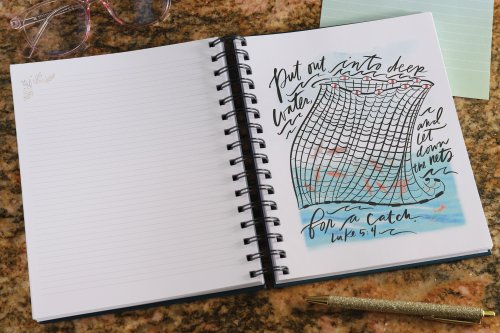 Put out into deep
water,
and
let
down
the nets
for a catch.
Luke 5:4